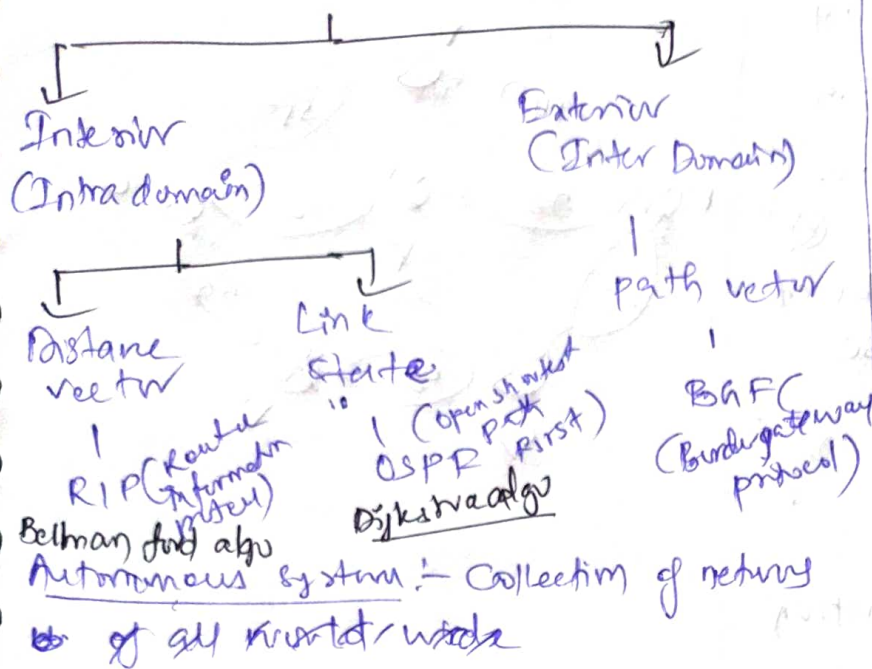 Interior
(Intra domain)
Exterior
(Inter Domain)
Distance
vector
Link
state
path vector
RIP (Route
information
OSPR
(open shortest
path
First)
BGF (
(Bordergateway
protocol)
Bellman ford algo
Dijkstra algo
Autonomous system :- Collection of
of all